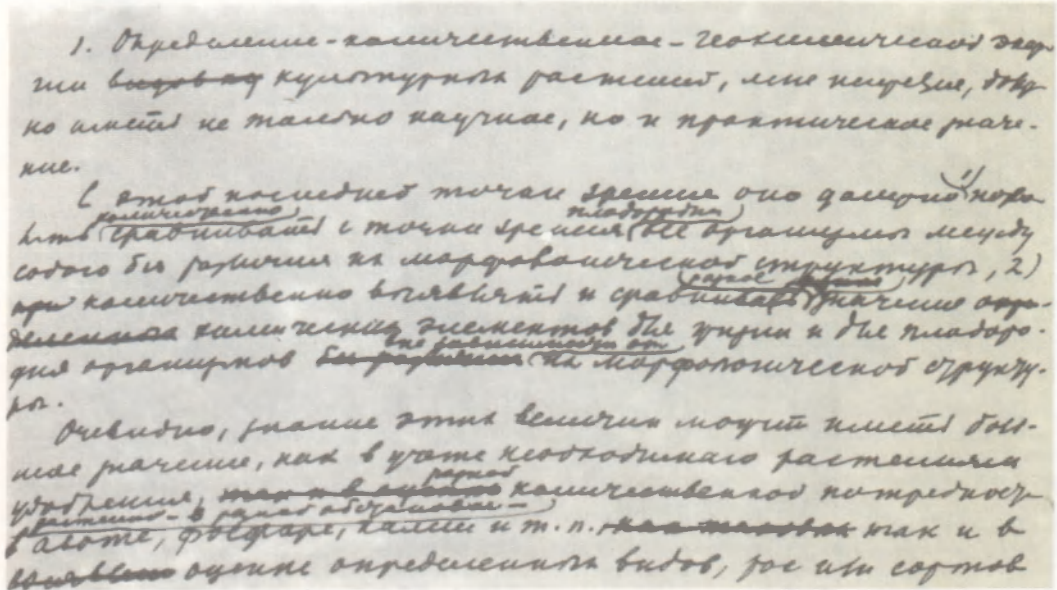 1. Определение - количественное - геохимической энер-
гии культурных растений, мне кажется, долж-
но иметь не только научное, но и практическое значе-
ние.
С этой последней точки зрения оно должно 1)
количественно плодородия
сравнивать с точки зрения все организмы между
собою без различия их морфологической структуры, 2)
при количественно выявлять и сравнивать разное значение опре-
деленных химических элементов для жизни и для плодоро-
вне зависимости от
дия организмов без различия их морфологической структу-
ры.
Очевидно, знание этих величин может иметь боль-
шое значение, как в учете необходимого растениям
разной
удобрения, количественной потребности
растению - в разной обстановке -
в азоте, фосфоре, калии и т. п. так и в
оценке определенных видов, рас или сортов